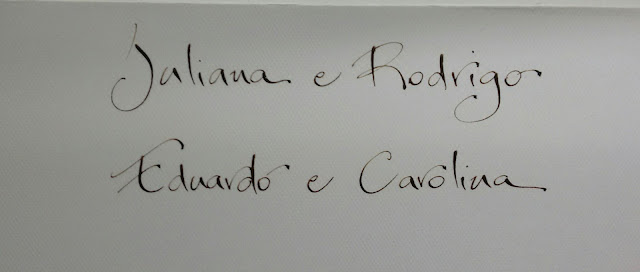 Juliana e Rodrigo
Eduardo e Carolina